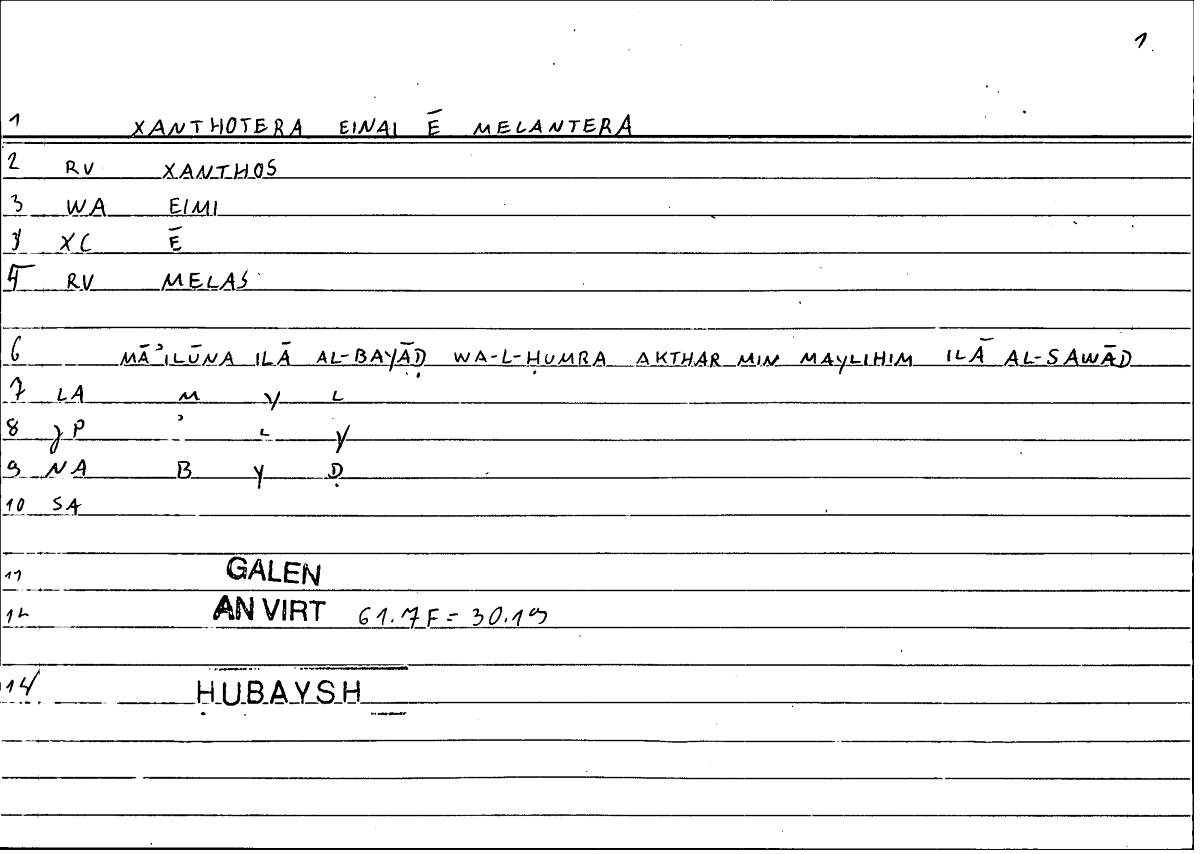 1.
1 XANTHOTERA EINAI Ē MELANTERA
2 RV XANTHOS
3 WA EIMI
4 XC Ē
5 RV MELAS
6 MĀʾILŪNA ILĀ AL-BAYĀḌ WA-L-ḤUMRA AKTHAR MIN MAYLIHIM ILĀ AL-SAWĀD
7 LA M Y L
8 JP ʾ L Y
9 NA B Y Ḍ
10 SA
11 GALEN
12 AN VIRT 61.7F = 30.19
14 ḤUBAYSH